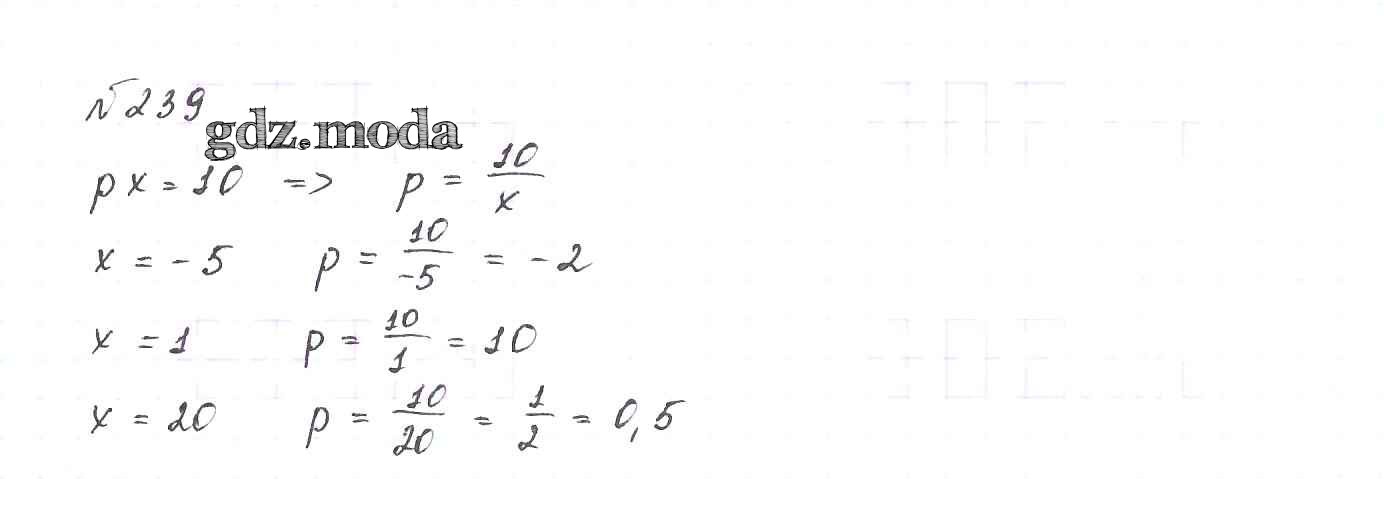 №239
gdz.moda
px = 10 => p = 10/x
x = -5 p = 10/-5 = -2
x = 1 p = 10/1 = 10
x = 20 p = 10/20 = 1/2 = 0,5